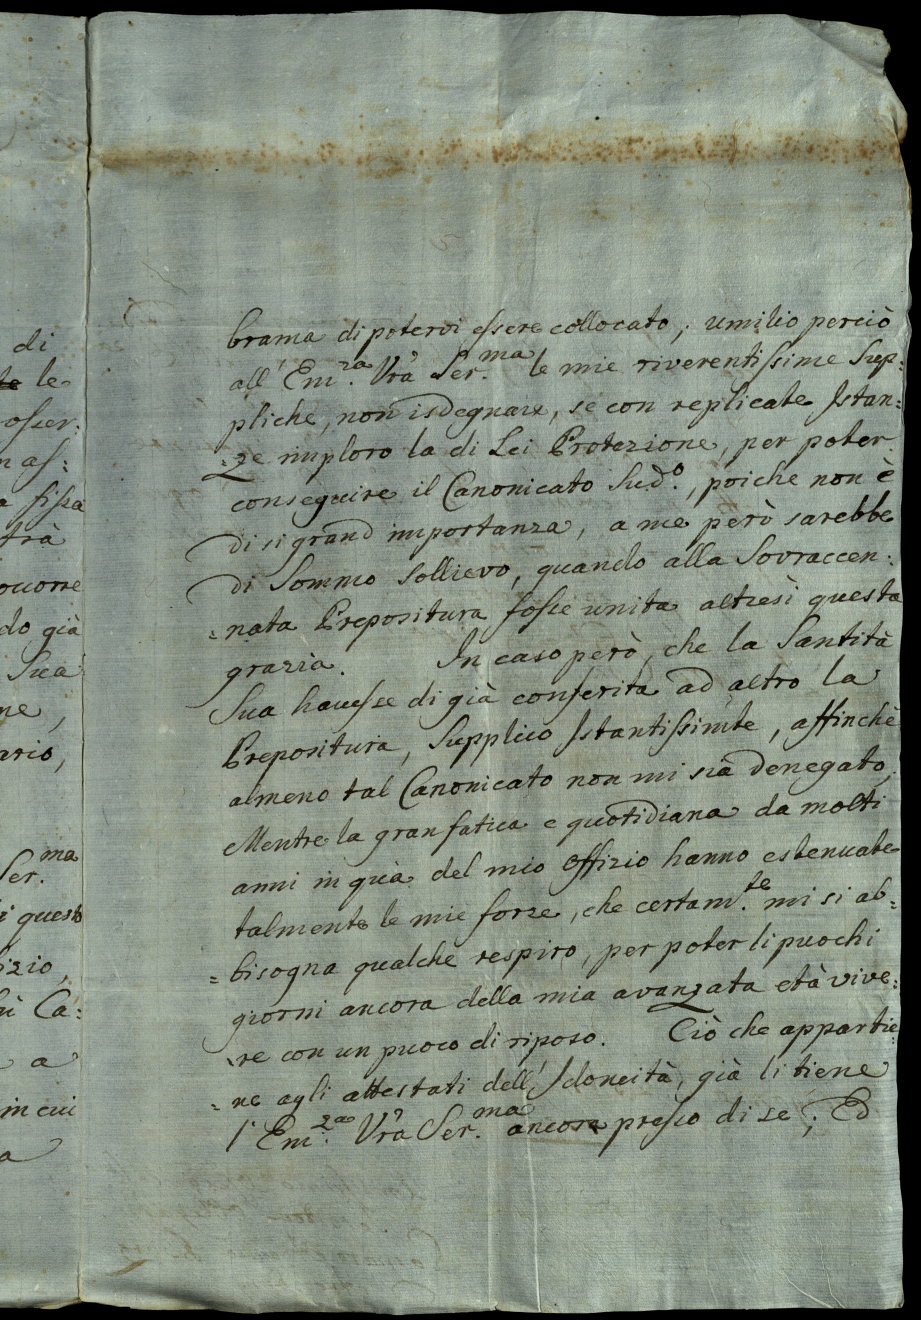 di
le
osser:
n as:
a fissa
trà
ocorre
do già
Sua
ne,
ario,
Ser.ma
i questo
izio,
ù Ca:
a
in cui
a
brama di potervi essere collocato; umilio perciò
all' Em.za Vrã Ser.ma le mie riverentissime Sup:
pliche, non isdegnare, se con replicate Istan:
:ze imploro la di Lei Protezione, per poter
conseguire il Canonicato Sud.o, poiche non è
di si grand importanza, a me però sarebbe
di Sommo Sollievo, quando alla Sovraccen:
:nata Prepositura fosse unita altresì questa
grazia. In caso però, che la Santità
Sua havesse di già conferita ad altro la
Prepositura, Supplico Istantissimte, affinchè
almeno tal Canonicato non mi sia denegato,
Mentre la gran fatica e quotidiana da molti
anni in quà del mio Offizio hanno estenuate
talmente le mie forze, che certam.te mi si ab:
:bisogna qualche respiro, per poter li puochi
giorni ancora della mia avanzata età vive:
:re con un puoco di riposo. Ciò che appartie:
:ne agli attestati dell' Idoneità, già li tiene
l' Em.za Vrã Ser.ma ancora presso di se; Ed